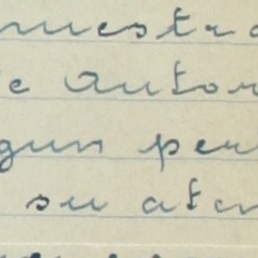 nuestra
e autor
gun per
su aten